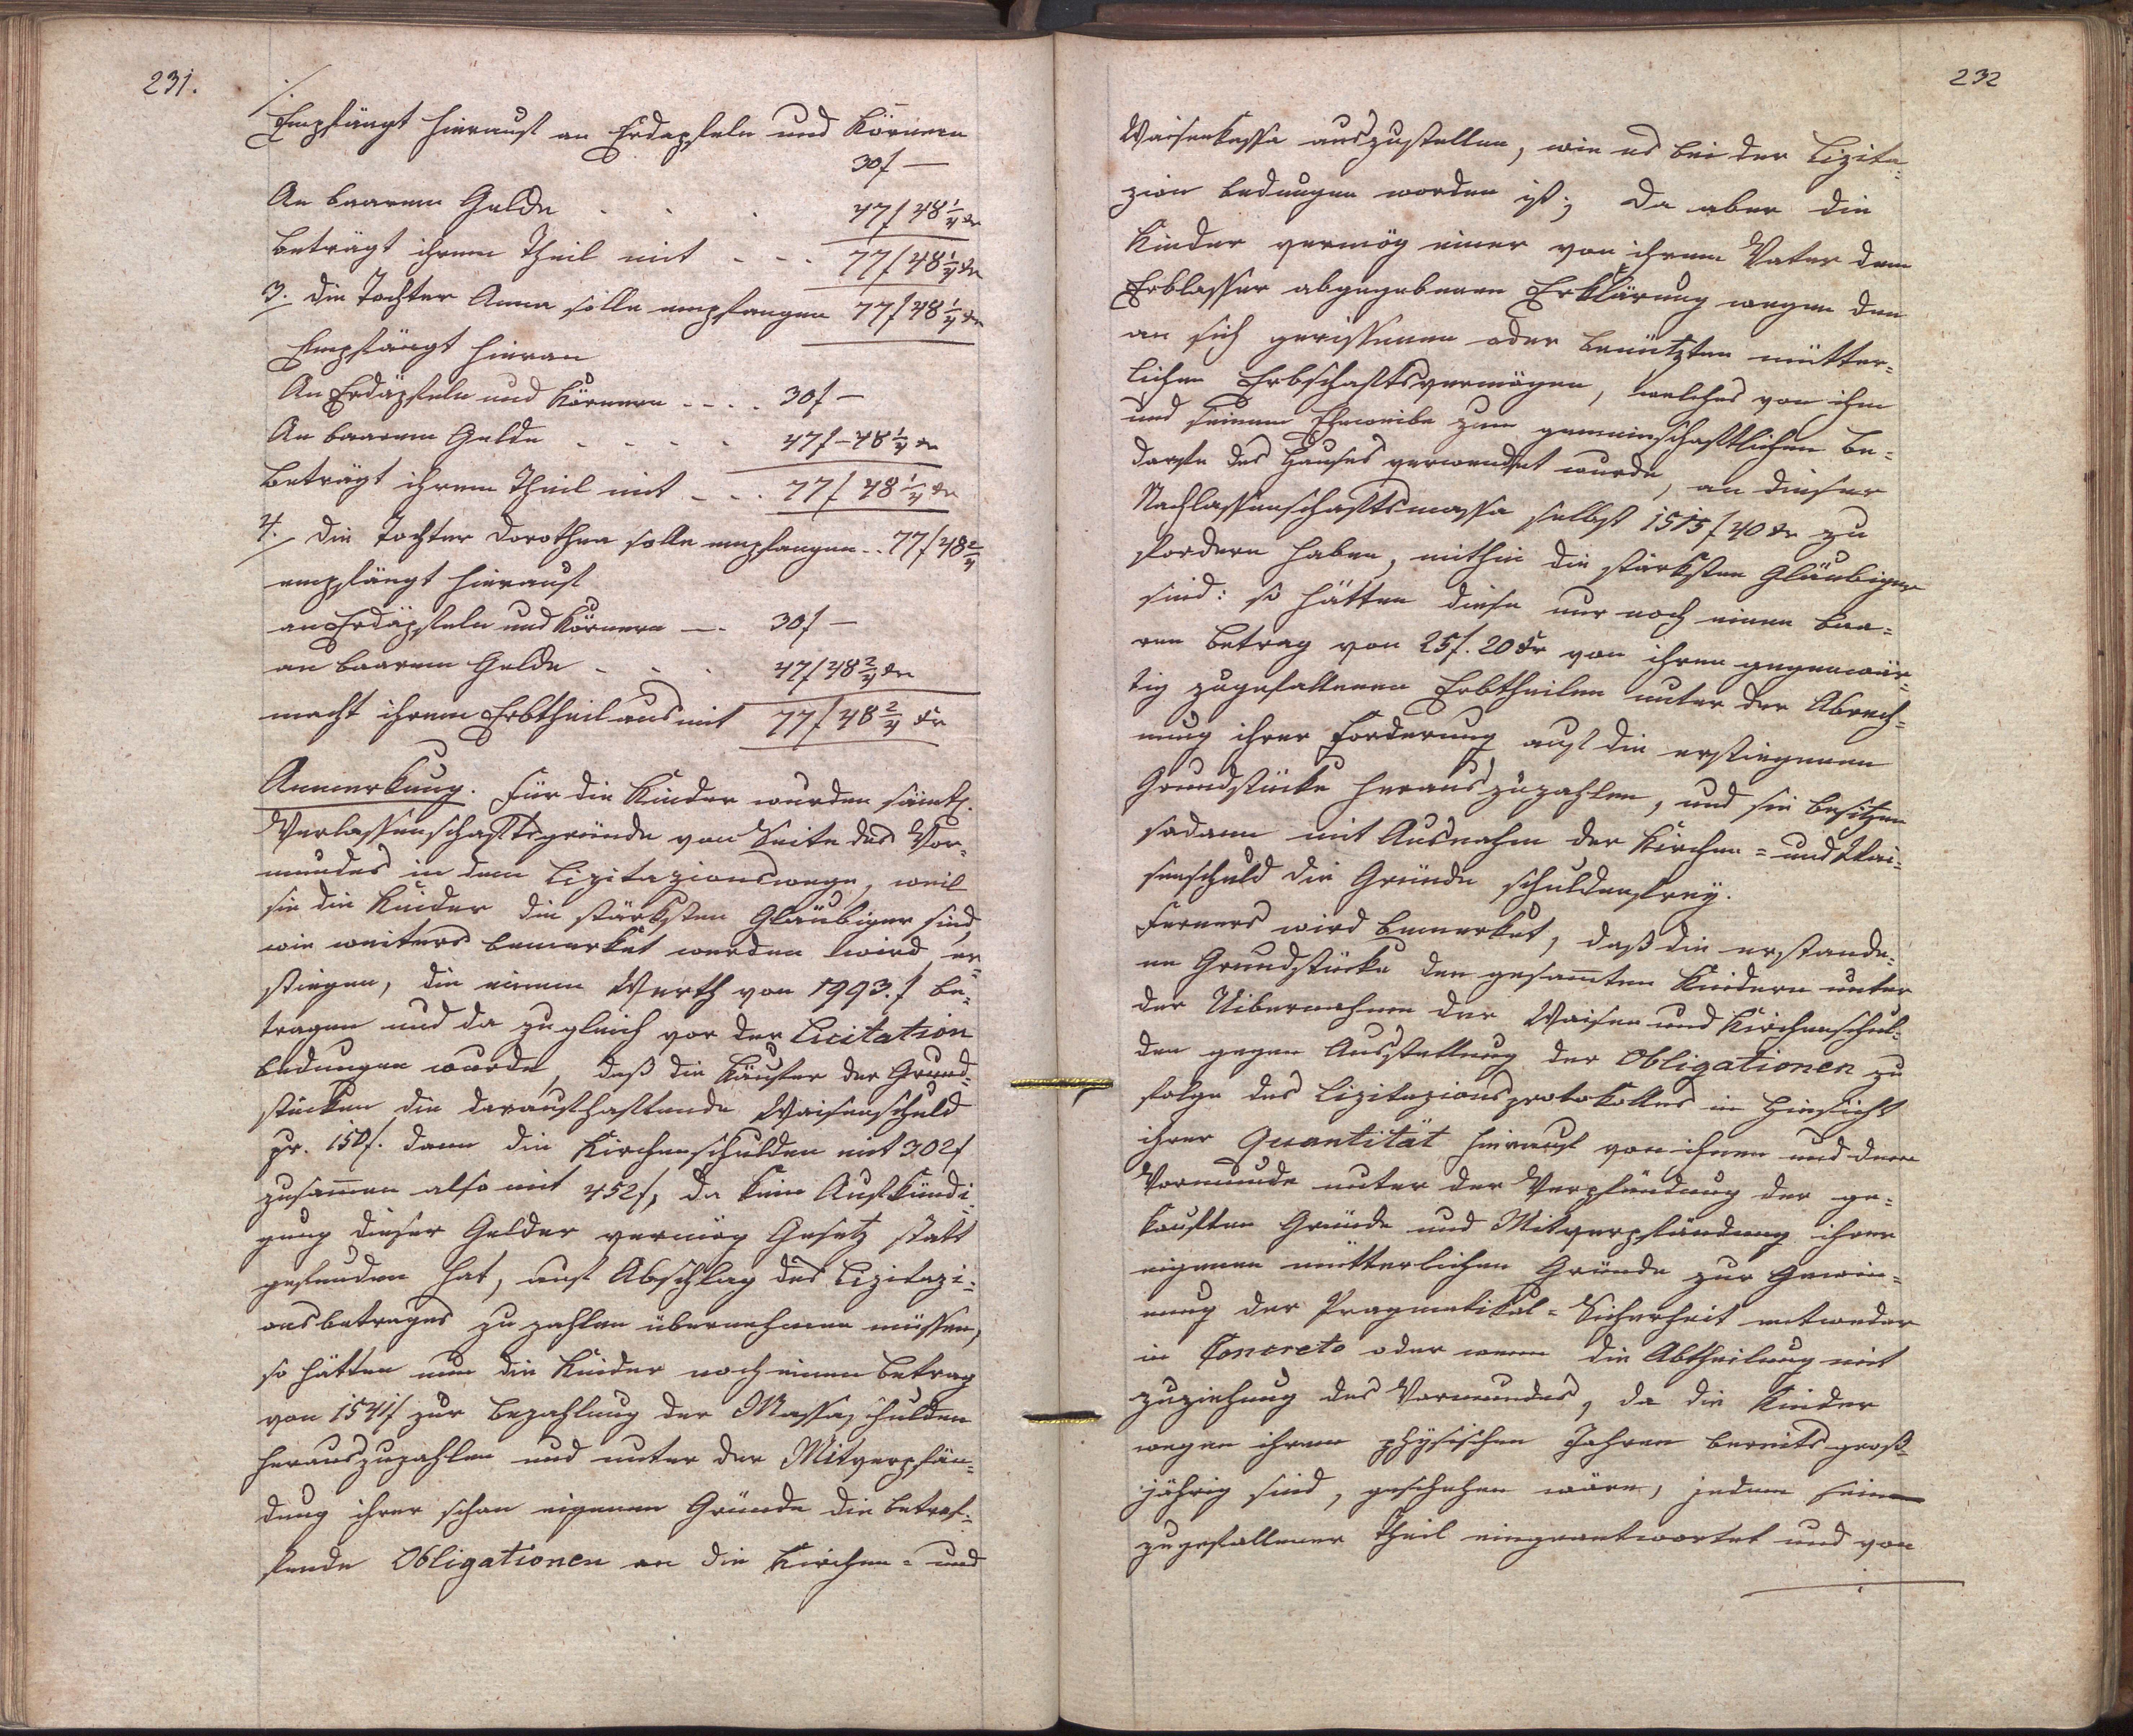 231.
./.
Empfängt hierauf an Erdapfeln und Körnern
30f —
An baarem Gelde . . . 47f 48 1/4 kr
beträgt ihrem Theil mit - - - 77f 48 1/4 kr
3. die Tochter Anna solle empfangen 77f 48 1/4 kr
Empfängt hieran
An Erdäpfeln und Körnern - - - . 30f —
An baarem Gelde - - - - 47f - 48 1/4 kr
beträgt ihrem Theil mit - - . 77f 48 1/4 kr
4. die Tochter Dorothea solle empfangen . . 77f 48 2/4
empfängt hierauf
an Erdäpfeln und Körnern — . 30f —
an baarem Gelde - - . 47f 48 2/4 kr
macht ihrem Erbtheil aus mit 77f 48 2/4 kr
Anmerkung. Für die Kinder wurden sämtl.
Verlassenschaftsgründe von Seite des Vor-
mundes in dem Lizitazionswege, weil
sie die Kinder die stärksten Gläubiger sind,
wie weiters bemerket werden wird er-
stiegen, die einem Werth von 1993. f be-
tragen und da zugleich vor der Licitation
bedungen wurde, daß die Käufer der Grund-
stücken die darauf haftende Waisenschuld
pr. 150f. dann die Kirchenschulden mit 302f
zusam̄en also mit 452f, da keine Aufkündi-
gung dieser Gelder vermög Gesetz statt
gefunden hat, auf Abschlag des Lizitazi-
onsbetrages zu zahlen übernehmen müssen,
so hätten nun die Kinder noch einen betrag
von 1541f zur bezahlung der Massaschulden
herauszuzahlen und unter der Mitverpfän-
dung ihrer schon eigenen Gründe die betref-
fende Obligationen an die Kirchen- und
232
Waisenkassa auszustellen, wie es bei der Lizita-
zion bedungen worden ist; da aber die
Kinder vermög einer von ihrem Vater dem
Erblasser abgegebenen Erklärung wegen den
an sich gerissenen oder benützten mütter-
lichen Erbschaftsvermögen, welches von ihm
und seinem Eheweibe zum gemeinschaftlichen be-
darfe des Hauses verwendet wurde, an dieser
Nachlassenschaftsmassa selbst 1515f 40 kr zu
fordern haben, mithin die stärksten Gläubiger
sind: so hätten diese nur noch einen baa-
ren betrag von 25f. 20 kr von ihren gegenwär-
tig zugefallenen Erbtheilen unter der Abrech-
nung ihrer Forderung auf die erstiegenen
Grundstücke herauszuzahlen, und sie besitzen
sodann mit Ausnahm der Kirchen- und Wai-
senschuld die Gründe schuldenfrey.
Ferners wird bemerket, daß die erstande-
ne Grundstücke den gesam̄ten Kindern unter
der Uibernahme der Waisen und Kirchenschul-
den gegen Ausstellung der Obligationen zu
folge des Lizitazionsprotokolles in Hinsicht
ihrer Quantität hierauf von ihnen und deren
Vormunde unter der Verpfändung der ge-
kauften Gründe und Mitverpfändung ihrer
eigenen mütterlichen Gründe zur Gewin-
nung der Pragmatikal-Sicherheit entweder
in Concreto oder wenn die Abtheilung mit
zuziehung des Vormundes, da die Kinder
wegen ihren physischen Jahren bereits groß-
jährig sind, geschehen wäre, jedem sein
zugefallener Theil eingeantwortet und von
./.